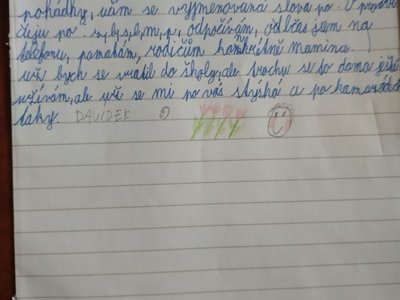 pohádky, učím se vyjmenovaná slova po.
čuju po s, l, m, p, odpočívám, občas jsem na
telefonu, pomáhám, rodičům konkrétně mamince.
už bych se vrátil do školy, ale trochu se to doma ještě
užívám, ale už se mi po vás stýská a po kamarádech
taky. DAVIDEK